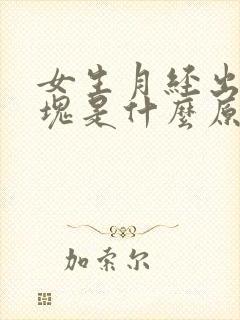 女生月经出
塊是什麼原
加索尔